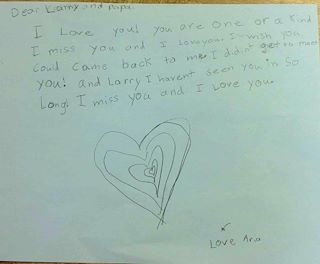 Dear Larry and Papa.
I Love you! you are one or a kind
I miss you and I Love you. I wish you
could came back to me. I didn't get to meet
you! and Larry I havent seen you in so
Long! I miss you and I Love you.
Love Ara